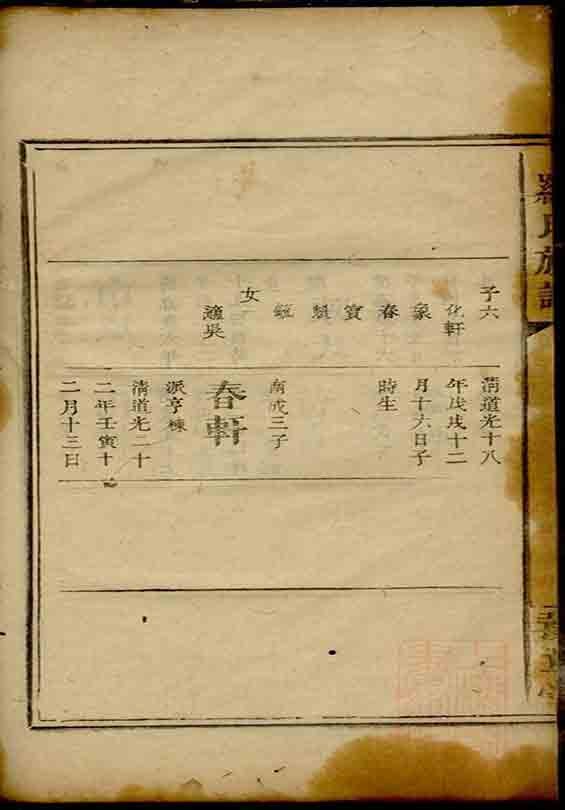 羅氏族譜
子六
化軒
象
春
女
適吳
清道光十八
年戊戌十二
月十六日子
時生
三子
春軒
派亨棟
清道光二十
二年壬寅十
二月十三日